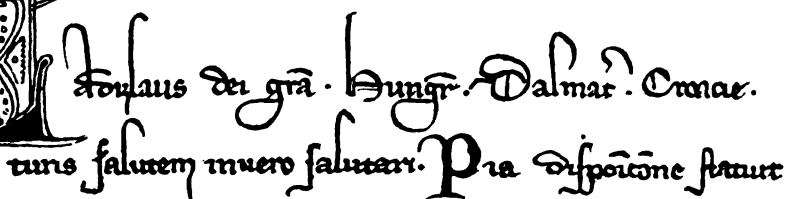 Ladizlaus dei gr̄a. Hungr̄. Dalmat̄. Croacie.
turis salutem in vero salutari. Pia disposic̄one statuit